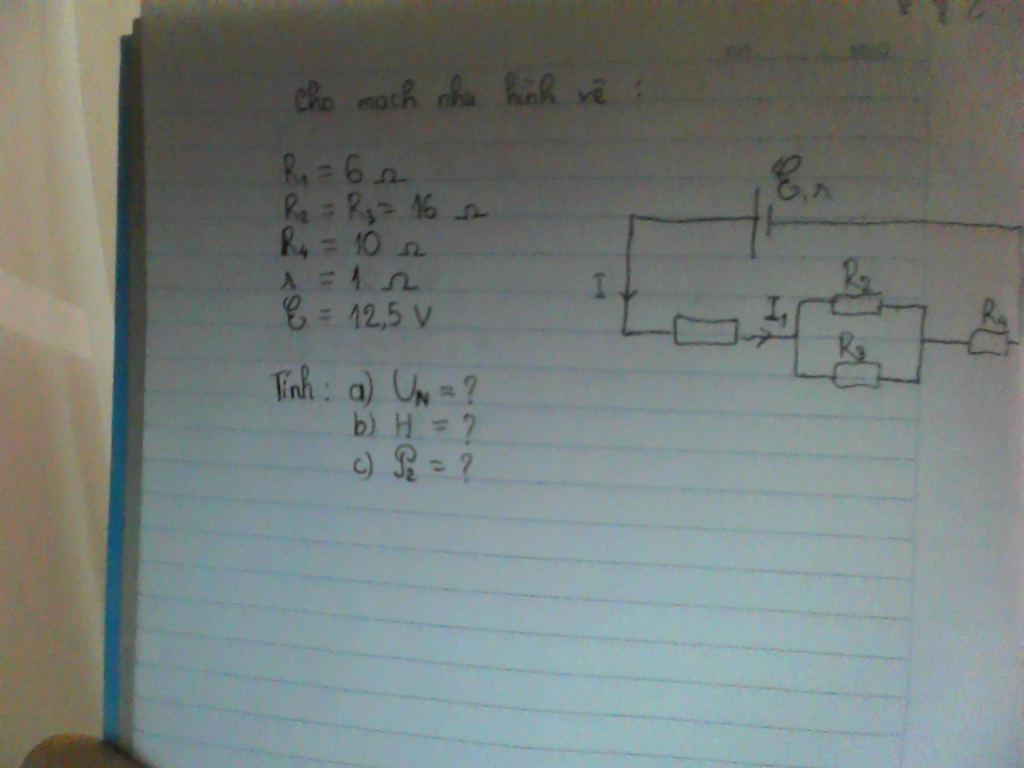 Cho mạch như hình vẽ :
R₁ = 6 Ω
R₂ = R₃ = 16 Ω
R₄ = 10 Ω
r = 1 Ω
ℰ = 12,5 V
Tính : a) U_N = ?
b) H = ?
c) 𝒫₂ = ?
ℰ, r
I
I₁
R₂
R₃
R₄